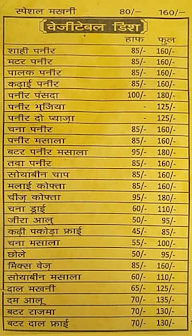 स्पेशल मखनी 80/- 160/-
वेजीटेबल डिश
हाफ फूल
शाही पनीर 85/- 160/-
मटर पनीर 85/- 160/-
पालक पनीर 85/- 160/-
कढ़ाई पनीर 85/- 160/-
पनीर पंसदा 100/- 180/-
पनीर भुजिया - 125/-
पनीर दो प्याजा - 125/-
चना पनीर 85/- 160/-
पनीर मसाला 85/- 160/-
बटर पनीर मसाला 95/- 180/-
तवा पनीर 85/- 160/-
सोयाबीन चाप 85/- 160/-
मलाई कोफ्ता 85/- 160/-
चीज कोफ्ता 95/- 180/-
चना ड्राई 60/- 110/-
जीरा आलू 50/- 95/-
कढ़ी पकोड़ा फ्राई 45/- 85/-
चना मसाला 55/- 100/-
छोले 50/- 95/-
मिक्स वेज 85/- 160/-
सोयाबीन मसाला 60/- 110/-
दाल मखनी 65/- 125/-
दम आलू 70/- 135/-
बटर राजमा 70/- 130/-
बटर दाल फ्राई 70/- 130/-